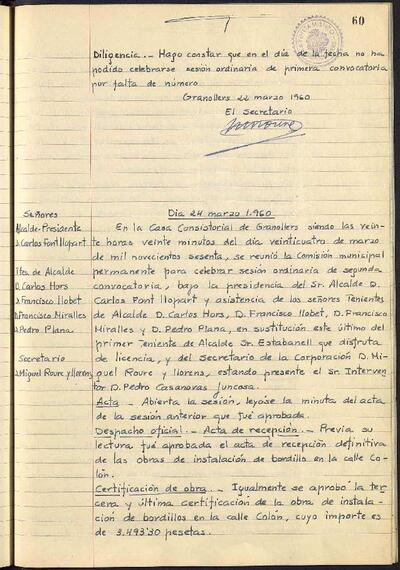 60
Diligencia.- Hago constar que en el día de la fecha no ha
podido celebrarse sesión ordinaria de primera convocatoria
por falta de número.
Granollers 22 marzo 1960
El Secretario
Señores
Alcalde-Presidente
D. Carlos Font Llopart
Ttes. de Alcalde
D. Carlos Hors
D. Francisco Llobet
D. Francisco Miralles
D. Pedro Plana
Secretario
D. Miguel Roure y Llorens
Dia 24 marzo 1.960
En la Casa Consistorial de Granollers siendo las vein-
te horas veinte minutos del día veinticuatro de marzo
de mil novecientos sesenta, se reunió la Comisión municipal
permanente para celebrar sesión ordinaria de segunda
convocatoria, bajo la presidencia del Sr. Alcalde D.
Carlos Font Llopart y asistencia de los señores Tenientes
de Alcalde D. Carlos Hors, D. Francisco Llobet, D. Francisco
Miralles y D. Pedro Plana, en sustitución este último del
primer Teniente de Alcalde Sr. Estabanell que disfruta
de licencia, y del Secretario de la Corporación D. Mi-
guel Roure y Llorens, estando presente el Sr. Interven-
tor D. Pedro Casanovas Juncosa.
Acta.- Abierta la sesión, leyóse la minuta del acta
de la sesión anterior que fué aprobada.
Despacho oficial.- Acta de recepción.- Previa su
lectura fué aprobada el acta de recepción definitiva
de las obras de instalación de bordillo en la calle Co-
lón.
Certificación de obra.- Igualmente se aprobó la ter-
cera y última certificación de la obra de instala-
ción de bordillos en la calle Colón, cuyo importe es
de 3.493'30 pesetas.